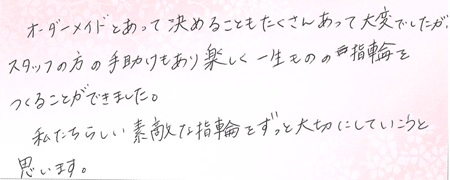 オーダーメイドとあって決めることもたくさんあって大変でしたが、
スタッフの方の手助けもあり楽しく一生ものの指輪を
つくることができました。
私たちらしい素敵な指輪をずっと大切にしていこうと
思います。